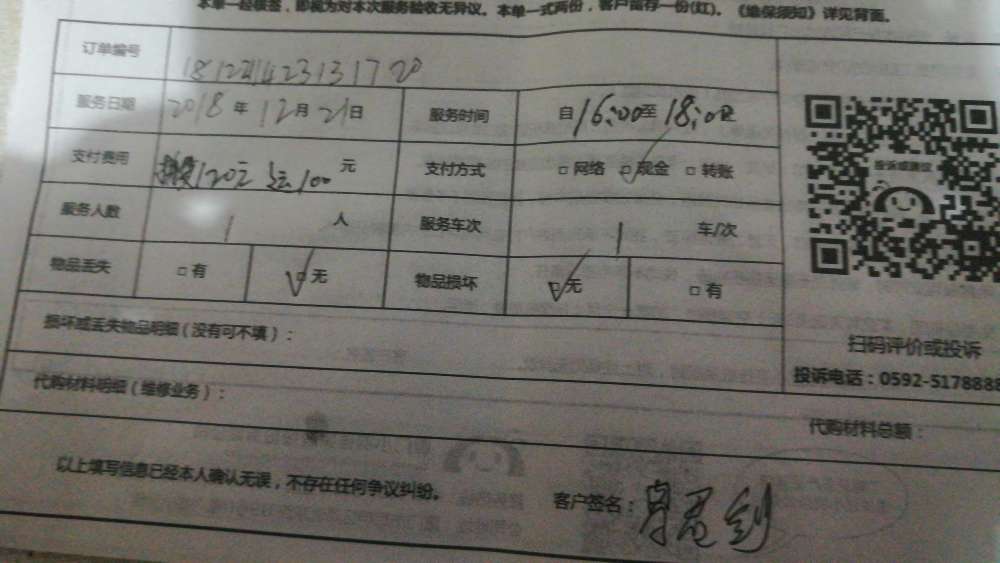 本单一经核签，即视为对本次服务验收无异议。本单一式两份，客户留存一份(红)。《维保须知》详见背面。
订单编号 181221423131720
服务日期 2018年12月21日 服务时间 自16:00至18:00
支付费用 120元 100元 支付方式 □网络 □现金 □转账
投诉或建议
服务人数 1人 服务车次 1车/次
物品丢失 □有 □无 物品损坏 □无 □有
损坏或丢失物品明细（没有可不填）：
扫码评价或投诉
投诉电话：0592-5178888
代购材料明细（维修业务）：
代购材料总额：
以上填写信息已经本人确认无误，不存在任何争议纠纷。
客户签名：